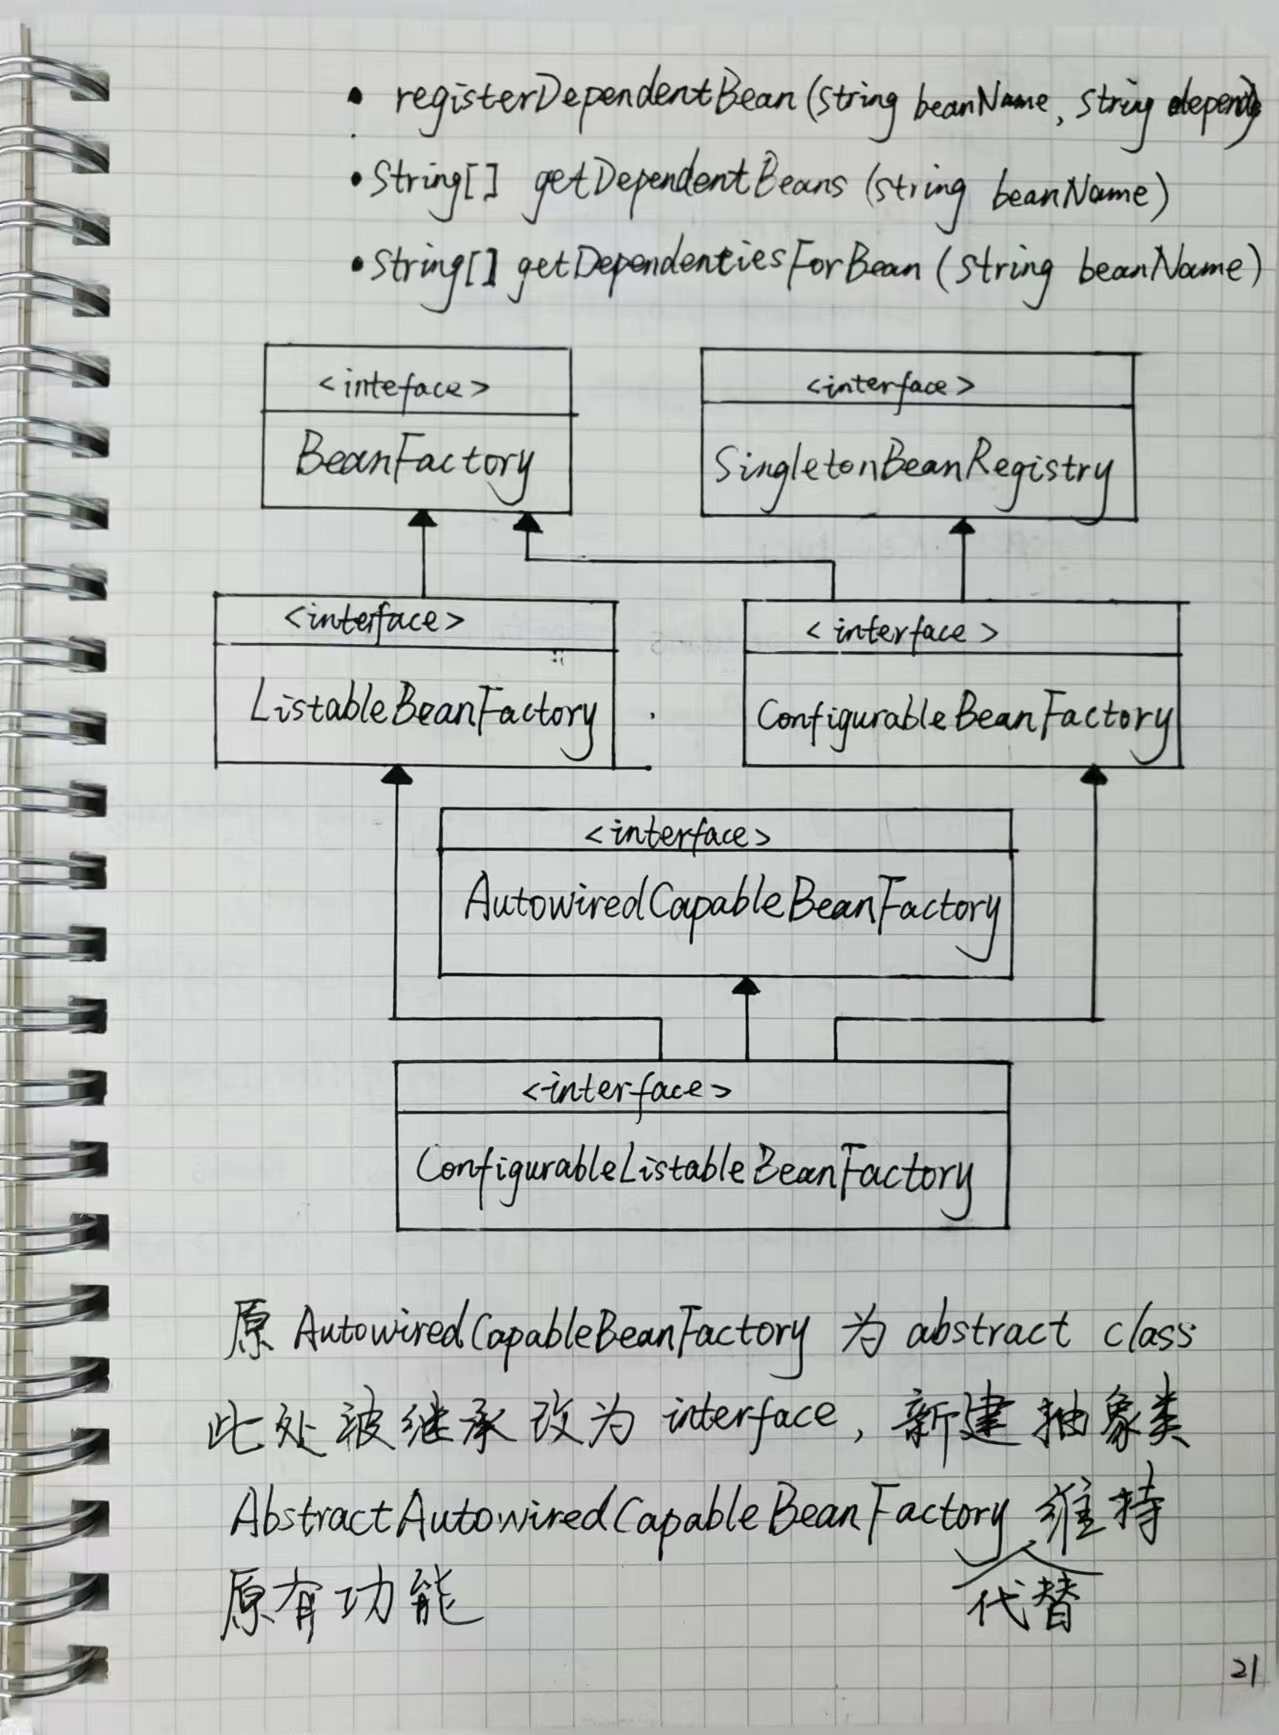 • registerDependentBean (String beanName, String depend
• String[] getDependentBeans (String beanName)
• String[] getDependentiesForBean (String beanName)
<inteface>
BeanFactory
<interface>
SingletonBeanRegistry
<interface>
ListableBeanFactory
<interface>
ConfigurableBeanFactory
<interface>
AutowiredCapableBeanFactory
<interface>
ConfigurableListableBeanFactory
原 AutowiredCapableBeanFactory 为 abstract class
此处被继承改为 interface, 新建抽象类
AbstractAutowiredCapableBeanFactory 维持
代替
原有功能
21